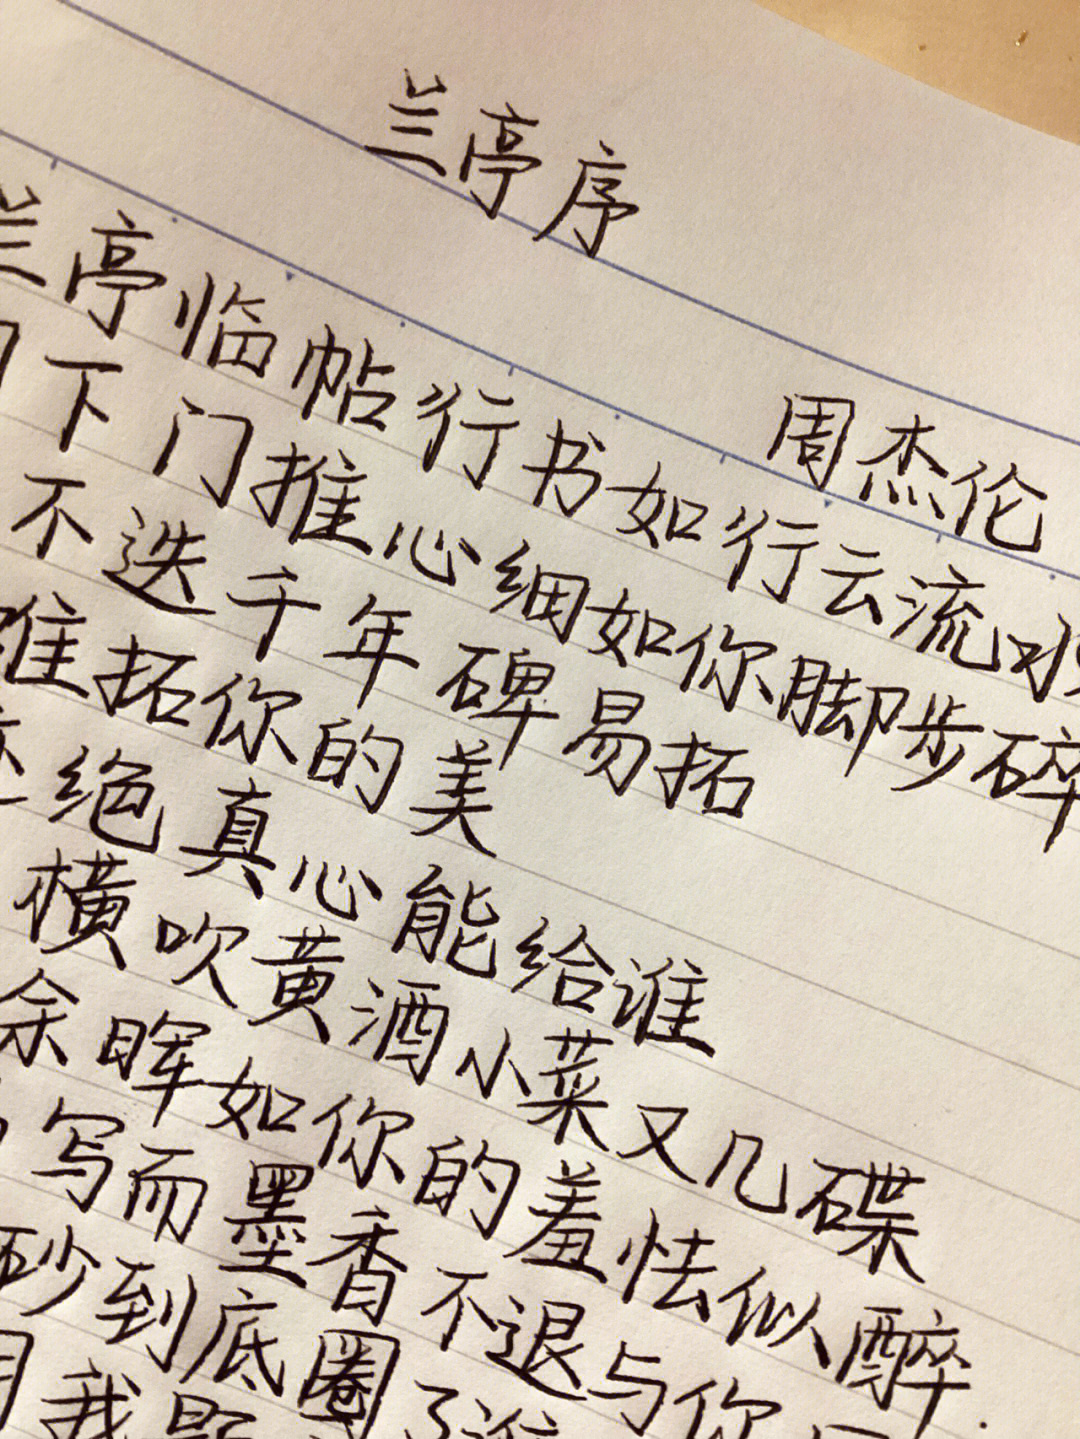 兰亭序
周杰伦
兰亭临帖行书如行云流水
下门推心细如你脚步碎
不迭千年碑易拓
难拓你的美
绝真心能给谁
横吹黄酒小菜又几碟
余晖如你的羞怯似醉
写而墨香不退与你
砂到底圈了谁
我题